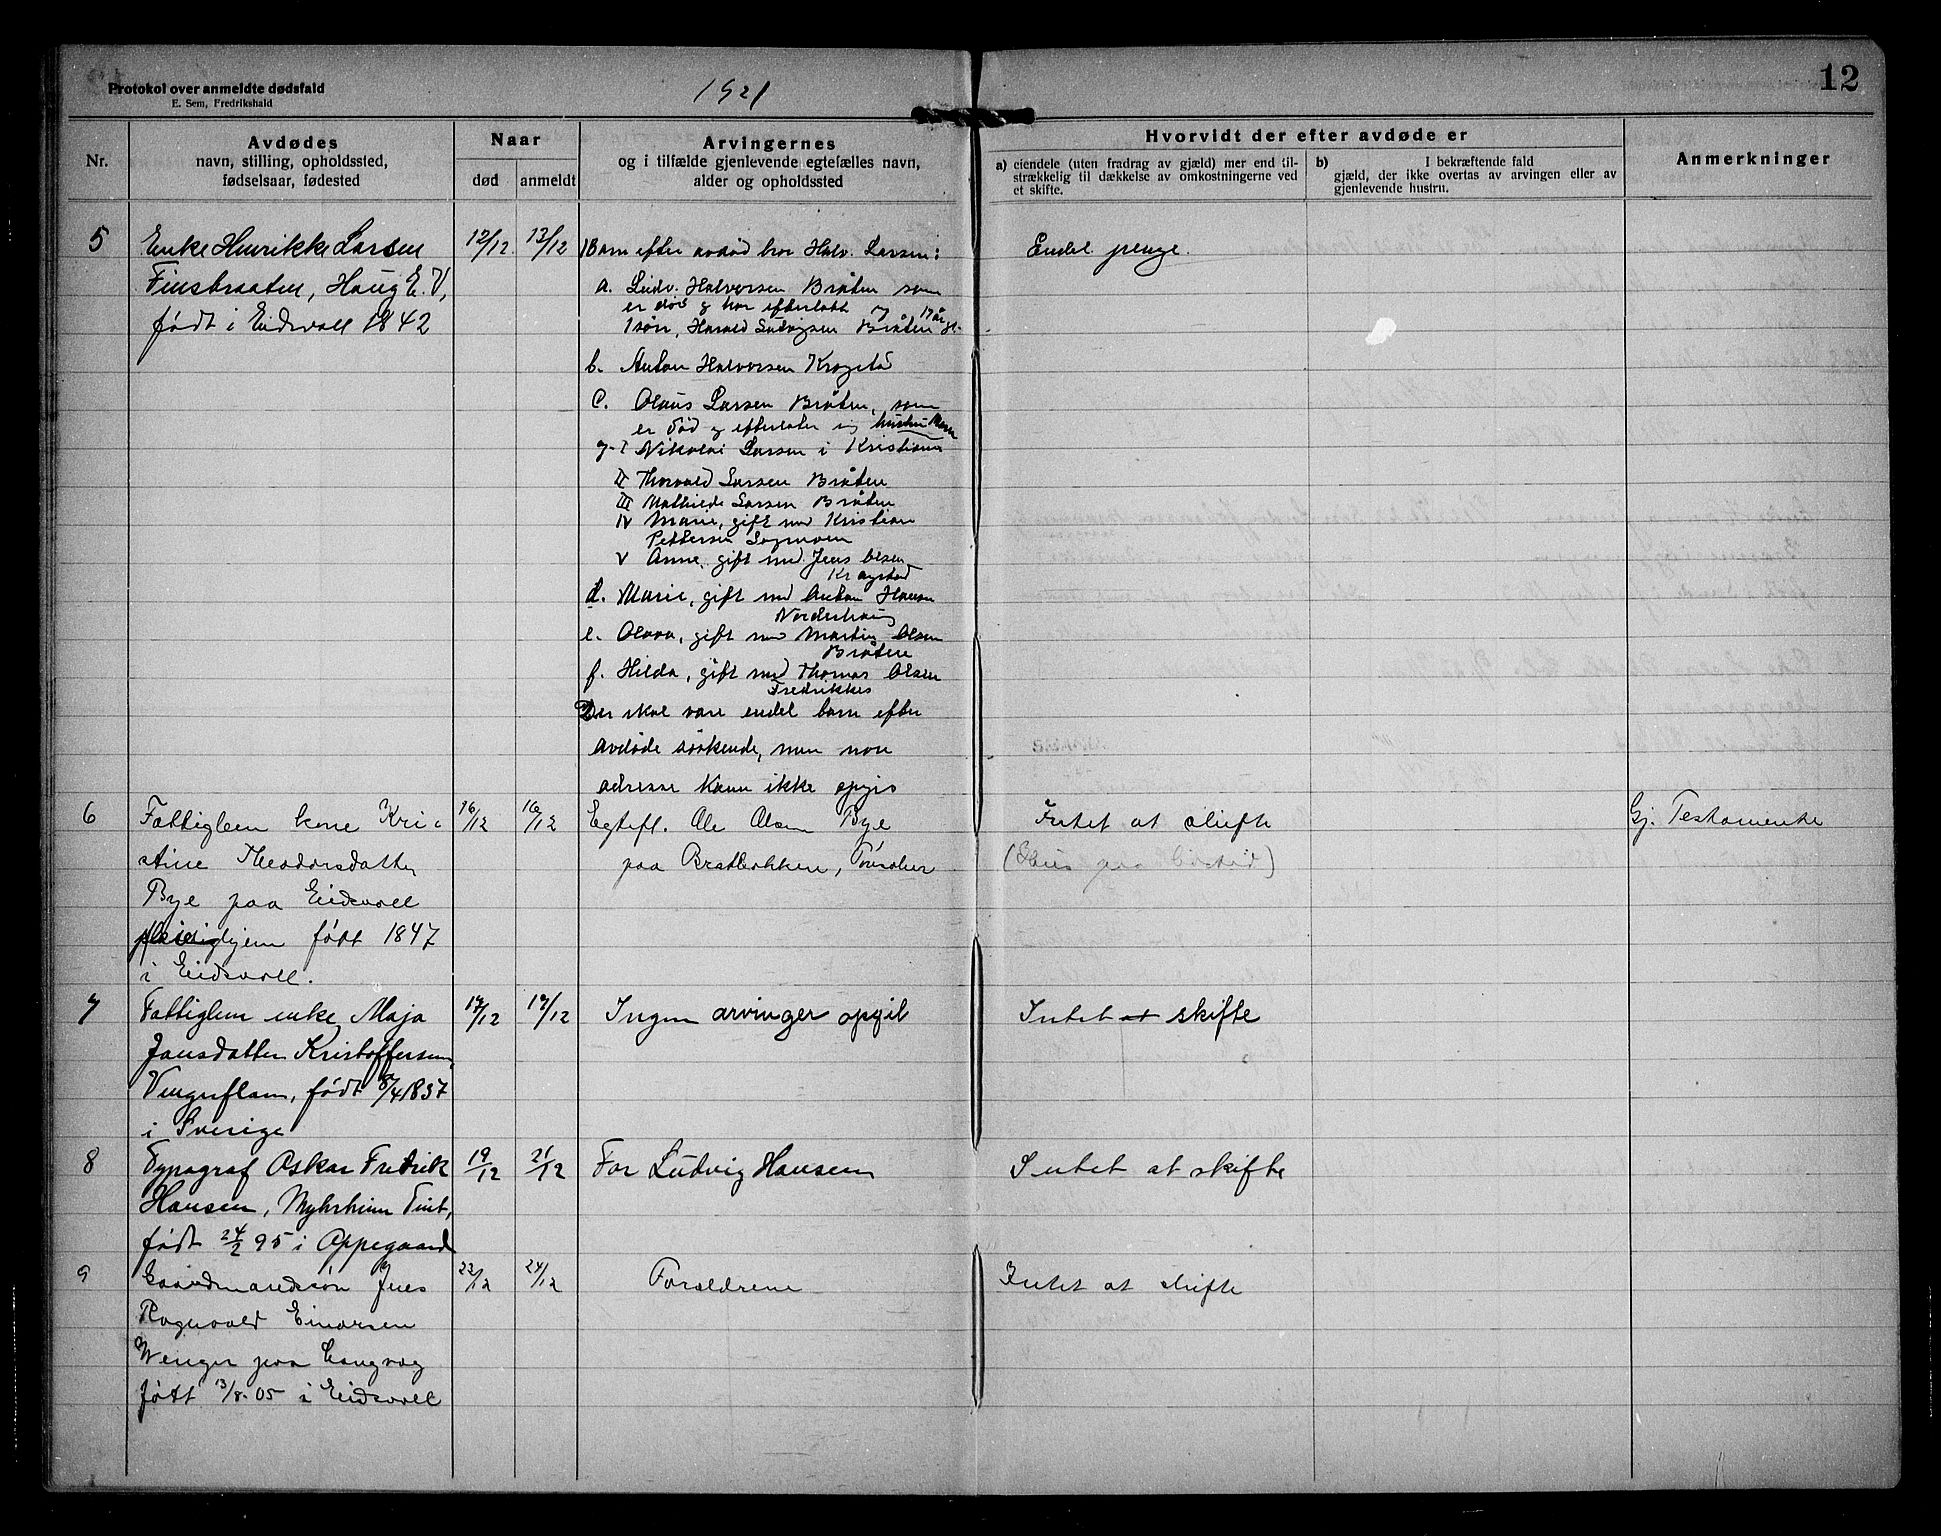 Protokol over anmeldte dødsfald
E. Sem, Fredrikshald
1921
12
Nr.
Avdødes
navn, stilling, opholdssted,
fødselsaar, fødested
Naar
død
anmeldt
Arvingernes
og i tilfælde gjenlevende egtefælles navn,
alder og opholdssted
Hvorvidt der efter avdøde er
a) eiendele (uten fradrag av gjæld) mer end til-
strækkelig til dækkelse av omkostningerne ved
et skifte.
b) I bekræftende fald
gjæld, der ikke overtas av arvingen eller av
gjenlevende hustru.
Anmerkninger
5
Enke Henrikke Larsen
Finsbraaten, Haug E. V,
født i Eidsvoll 1842
12/12
13/12
1 Barn efter avdød bror Halv. Larsen:
a. Ludv. Halvorsen Bråten som
er død og har efterlatt
1 søn, Harald Ludvigsen Bråten 17 år
b. Anton Halvorsen Krogstad
c. Olaus Larsen Bråten, som
er død og efterlater sig hustru
I Nikolai Larsen i Kristiania
II Thorvald Larsen Bråten
III Mathilde Larsen Bråten
IV Marie, gift med Kristian
Pettersen
V Anne, gift med Jens Olsen
Krogstad
d. Marie, gift med Anton Hansen
Norderhaug
e. Olava, gift med Martin Olsen
Bråten
f. Hilda, gift med Thomas Olsen
Fredrikkes
Der skal være endel barn efter
avdøde søskende, men non
adresse kann ikke opgis
Endel penge.
6
Fattiglem kone Kri-
stine Theodorsdatter
Bye paa Eidsvoll
pleiehjem født 1847
i Eidsvoll.
16/12
16/12
Egtefl. Ole Olsen Bye
paa Bratbakken,
Intet at skifte
(Hus paa
Gj. Testamente
7
Fattiglem enke Maja
Jansdatter Kristoffersen,
født 8/4 1837
i Sverige
17/12
19/12
Ingen arvinger opgit
Intet at skifte
8
Typograf Oskar Fredrik
Hansen, Myhrheim Tint,
født 24/2 95 i Oppegaard
19/12
21/12
Far Ludvig Hansen
Intet at skifte
9
Gaardmandssøn Jens
Ragnvald Einarsen
Wenger paa Langvag
født 13/8-05 i Eidsvoll
22/12
24/12
Forældrene
Intet at skifte